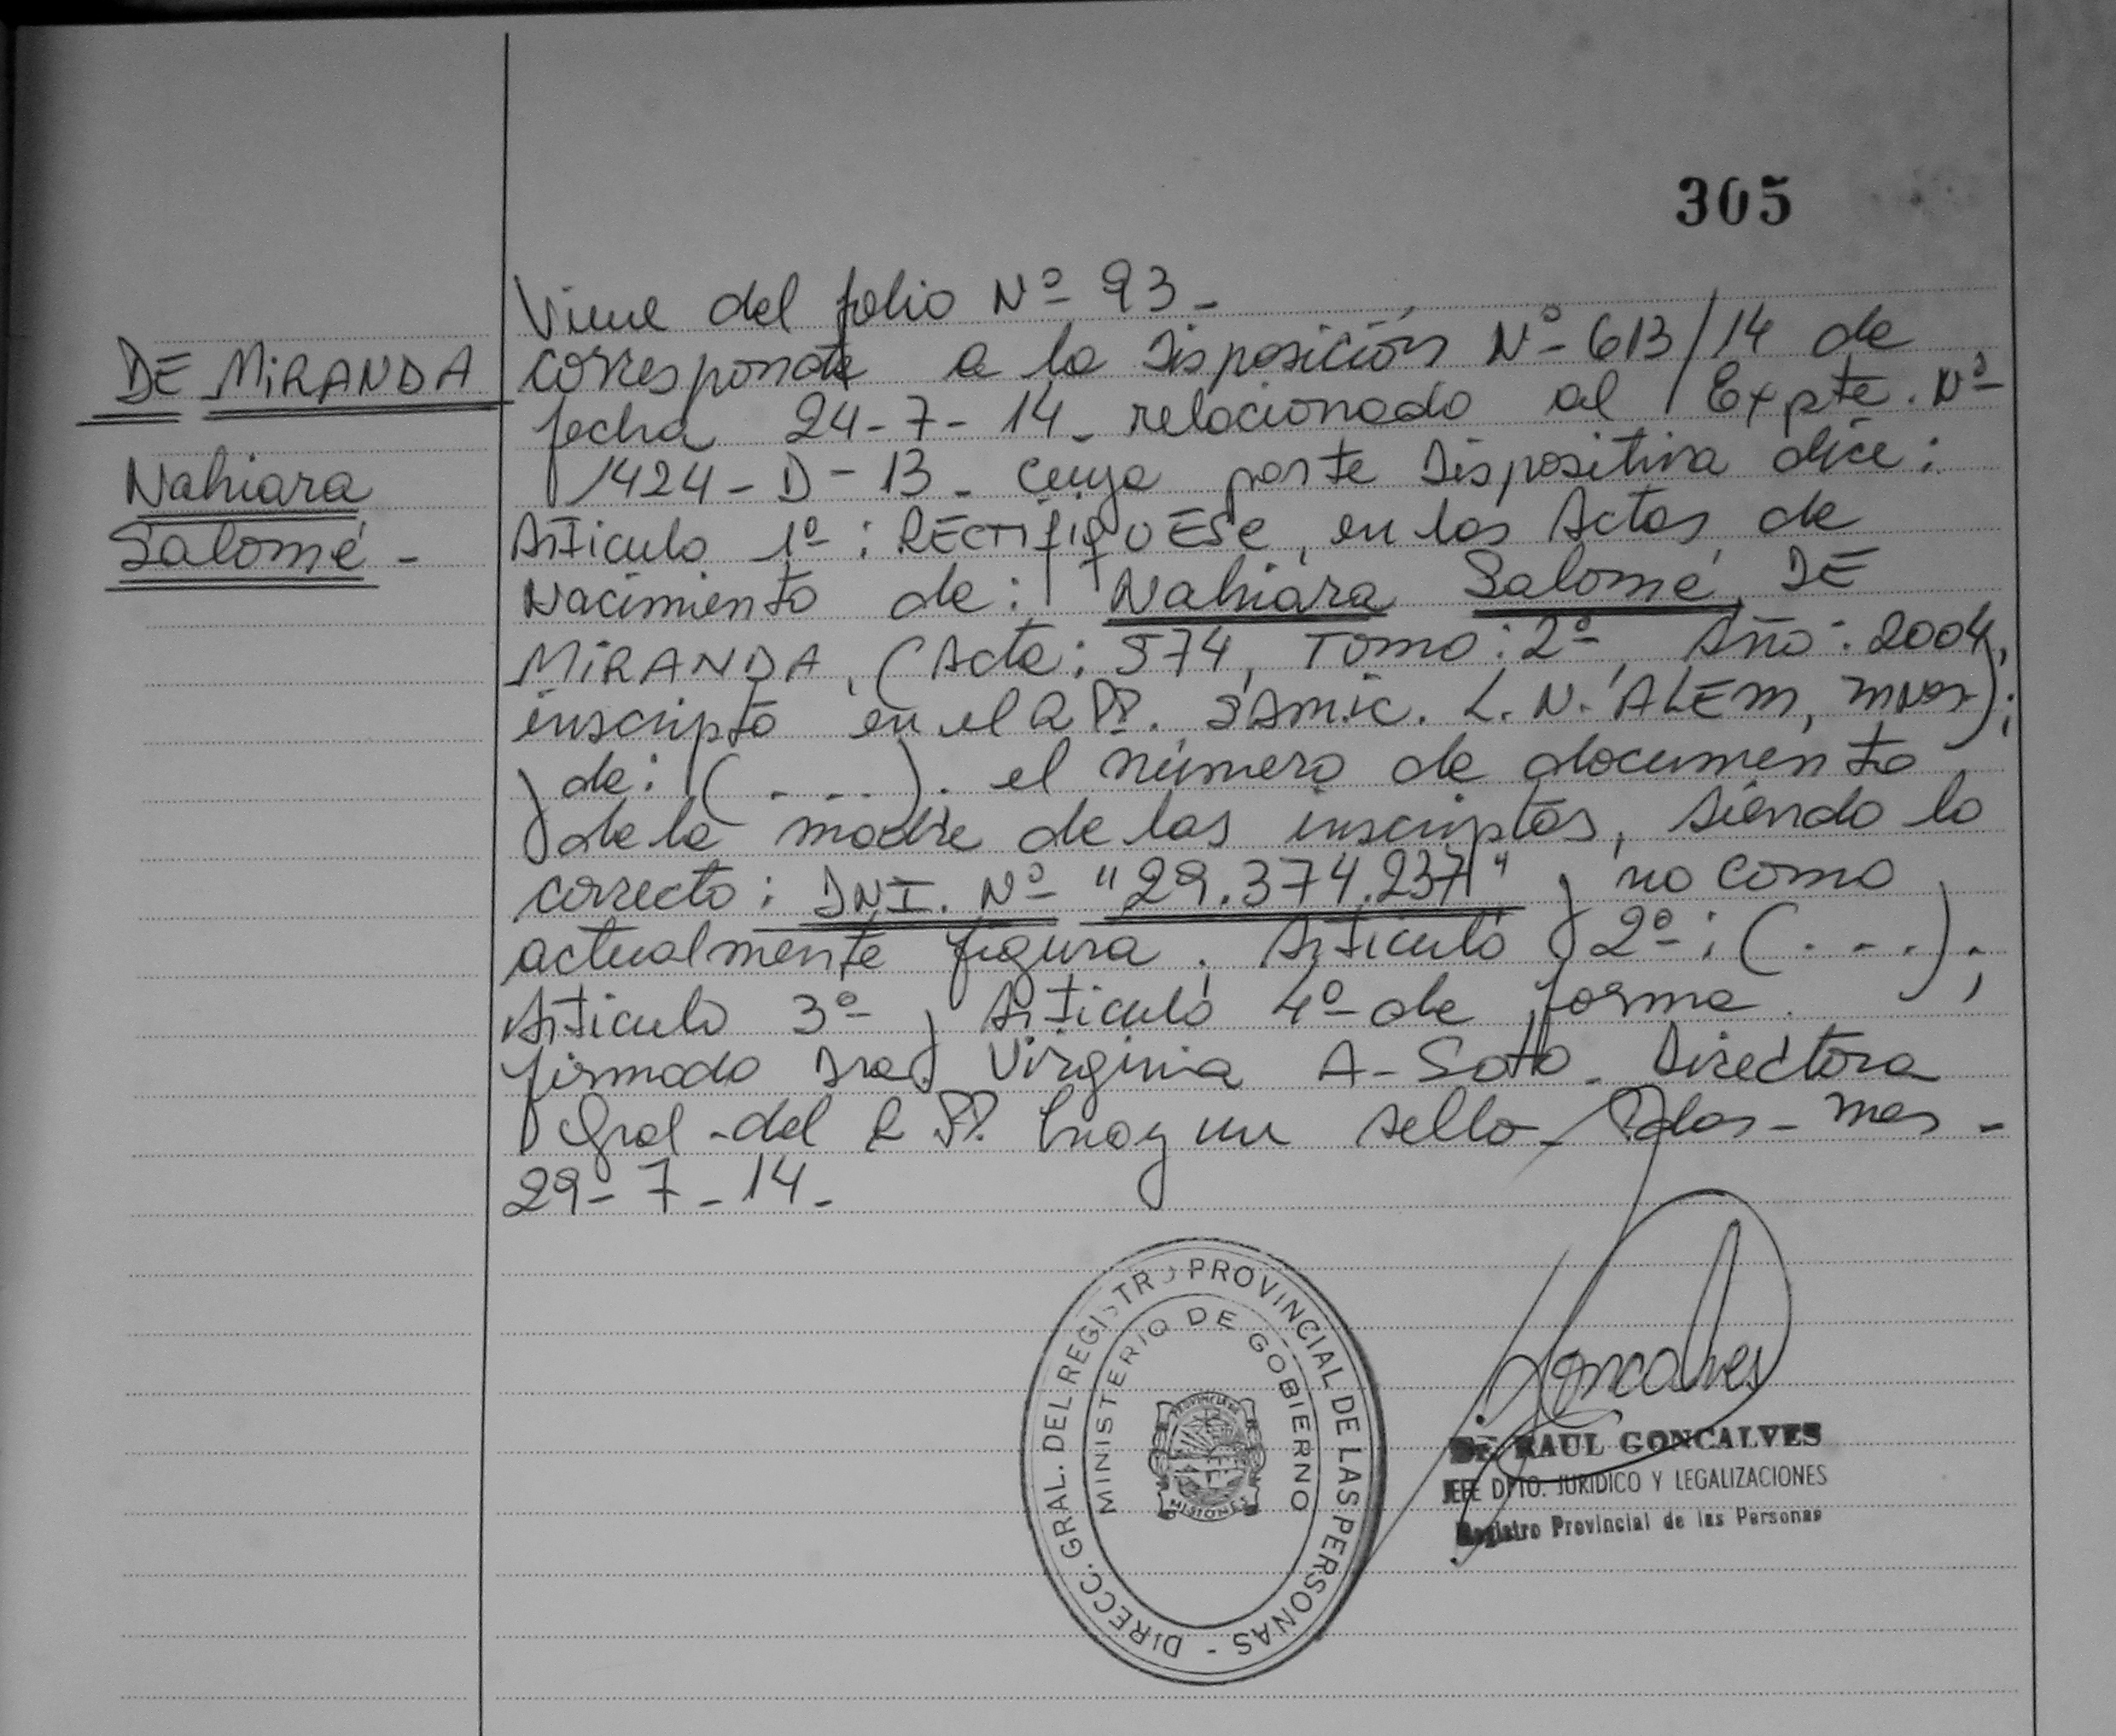 305
Viene del folio Nº 93 -
DE MiRANDA
corresponde a la Disposición Nº 613/14 de
fecha 24-7-14 - relacionado al Expte. Nº
Nahiara
1424 - D - 13 - cuya parte Dispositiva dice:
Salomé -
Articulo 1º: RECTifiQUESE, en las Actas de
Nacimiento de: Nahiara Salomé DE
MiRANDA, (Acta: 574, Tomo: 2º Año: 2004,
inscripta en el R.P.P. L. N. ALEM, Mnes);
y de: (....). el número de documento
de la madre de las inscriptas, siendo lo
correcto: DNI. Nº "29.374.237" y no como
actualmente figura. Articulo 2º: (....);
Articulo 3º y Articulo 4º de forma.
firmado Dra. Virginia A. Soto - Directora
Gral - del R.P.P. hay un sello - Pdas - Mnes -
29 - 7 - 14 -
DIRECC. GRAL. DEL REGISTRO PROVINCIAL DE LAS PERSONAS -
MINISTERIO DE GOBIERNO
PROVINCIA DE
MISIONES
Goncalves
Dr. RAUL GONCALVES
JEFE DPTO. JURIDICO Y LEGALIZACIONES
Registro Provincial de las Personas